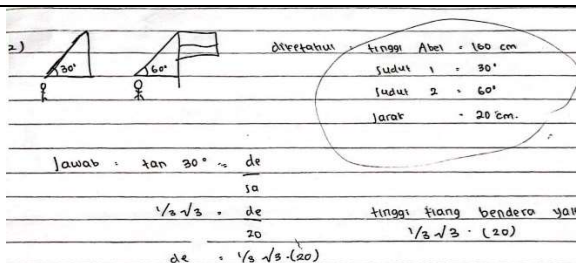 2)
30°
60°
diketahui : tinggi Abel = 160 cm
sudut 1 = 30°
sudut 2 = 60°
Jarak = 20 cm.
Jawab = tan 30° = de
sa
1/3 √3 = de
20
de = 1/3 √3 · (20)
tinggi tiang bendera
1/3 √3 · (20)